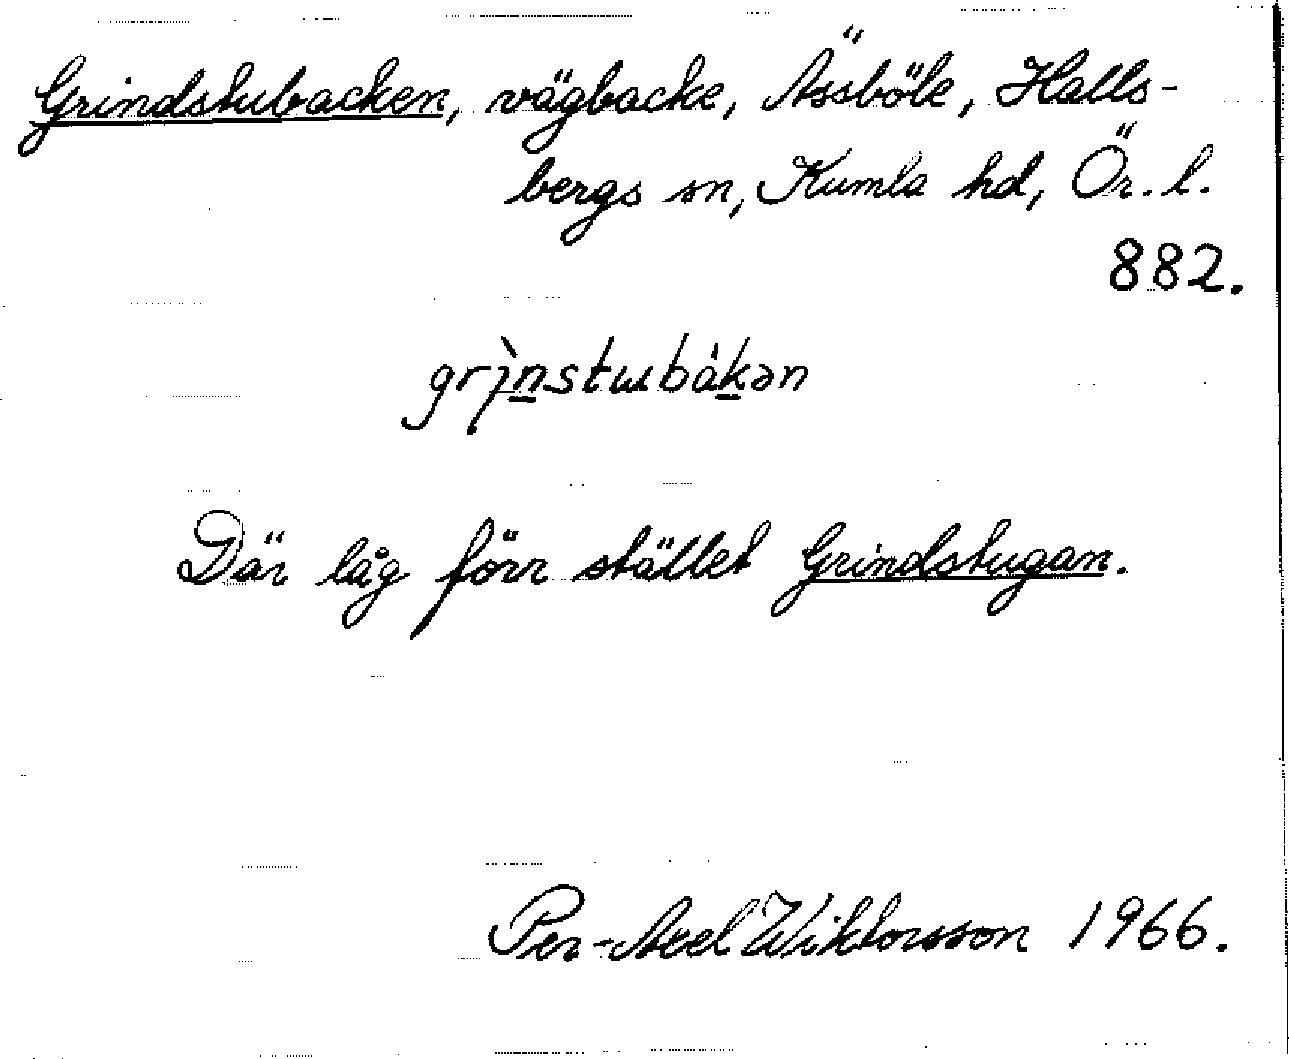 Grindstubacken, vägbacke, Ässböle, Halls-
bergs sn, Kumla hd, Ör. l.
882.
grı̀n̲stɯbák̲ən
Där låg förr stället Grindstugan.
Per-Axel Wiktorsson 1966.